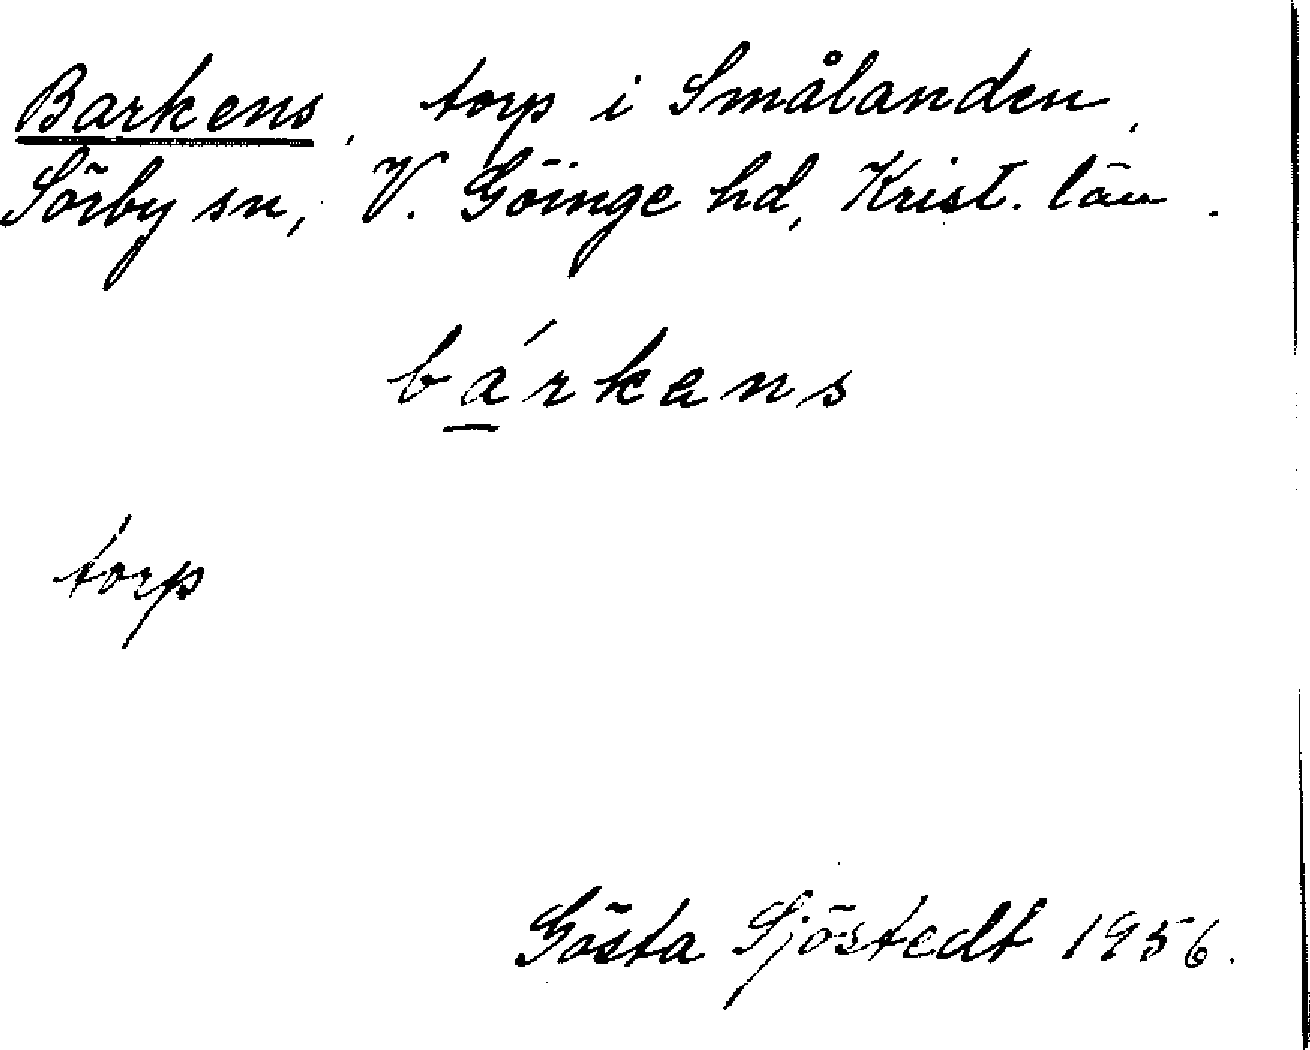 Barkens, torp i Smålanden,
Sörby sn, V. Göinge hd, Krist. län.
bá̱rkens
torp
Gösta Sjöstedt 1956.